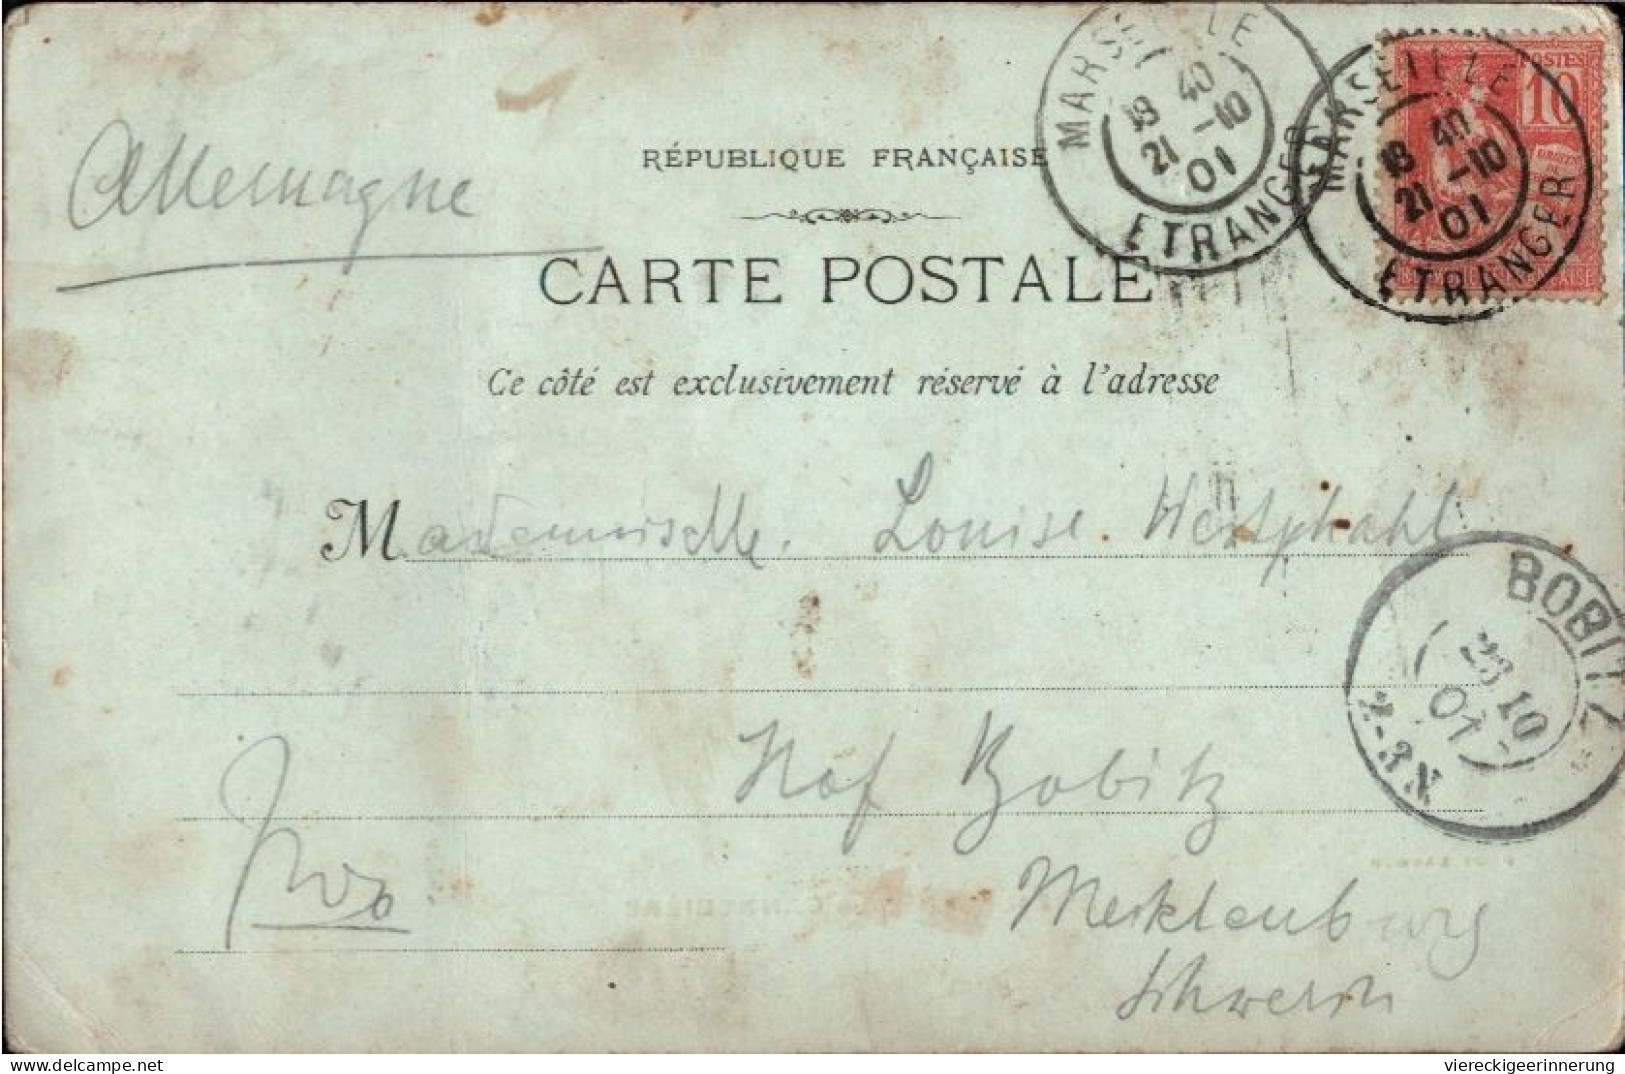 MARSEILLE
18 40
21 -10
01
ETRANGER
MARSEILLE
18 40
21 -10
01
ETRANGER
POSTES
10
Allemagne
RÉPUBLIQUE FRANÇAISE
CARTE POSTALE
Ce côté est exclusivement réservé à l'adresse
Mademoiselle. Louise. Westphahl
BOBITZ
23 10
01
2-3N
Hof Bobitz
Mecklenburg
Schwerin
www.delcampe.net
viereckigeerinnerung